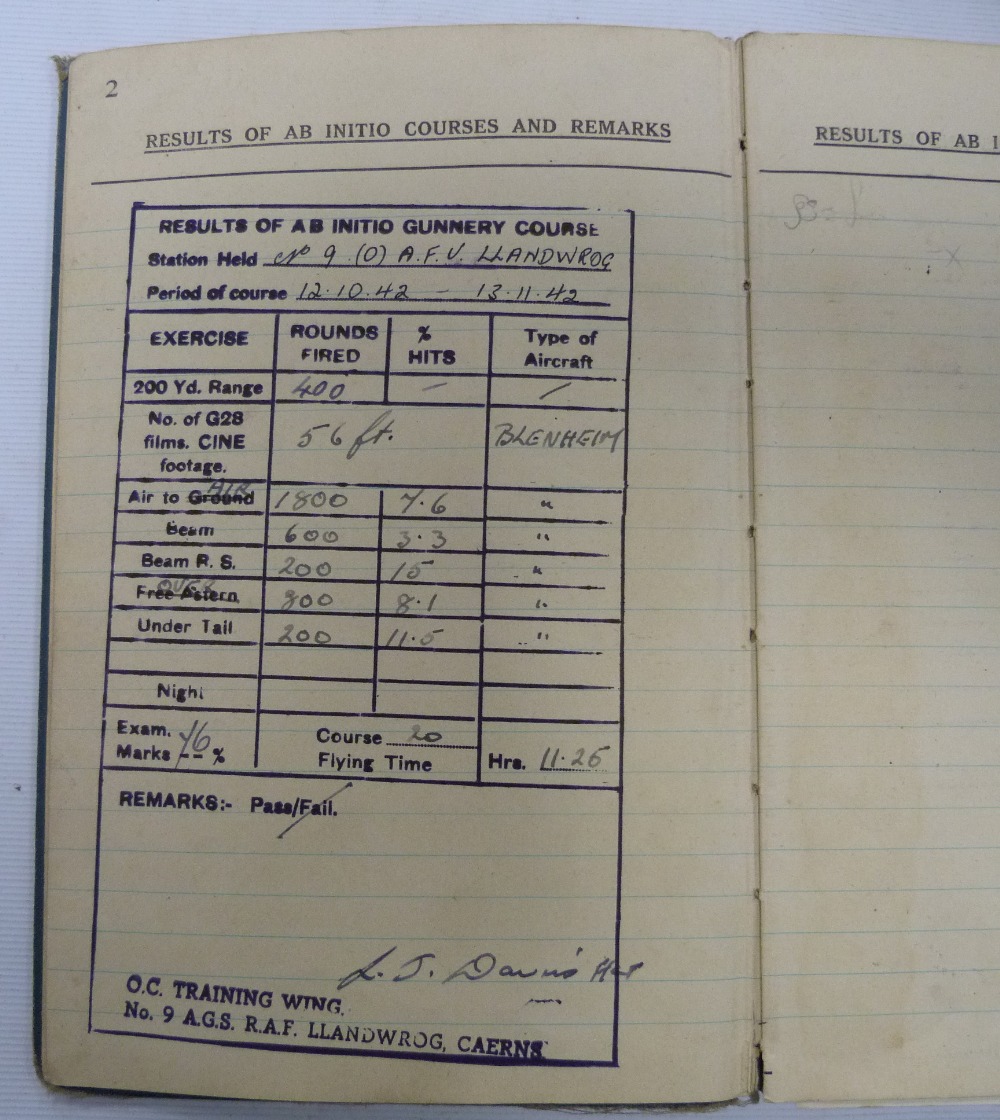 2
RESULTS OF AB INITIO COURSES AND REMARKS
RESULTS OF AB INITIO GUNNERY COURSE
Station Held No 9 (O) A.F.U. LLANDWROG
Period of course 12.10.42 – 13.11.42
EXERCISE ROUNDS FIRED % HITS Type of Aircraft
200 Yd. Range 400 – /
No. of G28 films. CINE footage. 56 ft. BLENHEIM
AIR
Air to Ground 1800 7.6 "
Beam 600 3.3 "
Beam R. S. 200 15 "
OVER
Free Astern 800 8.1 "
Under Tail 200 11.5 "
Night
Exam. Marks 76 % Course 20 Flying Time Hrs. 11.25
REMARKS:- Pass/Fail.
L. J. Davis
O.C. TRAINING WING,
No. 9 A.G.S. R.A.F. LLANDWROG, CAERNS.
RESULTS OF AB I